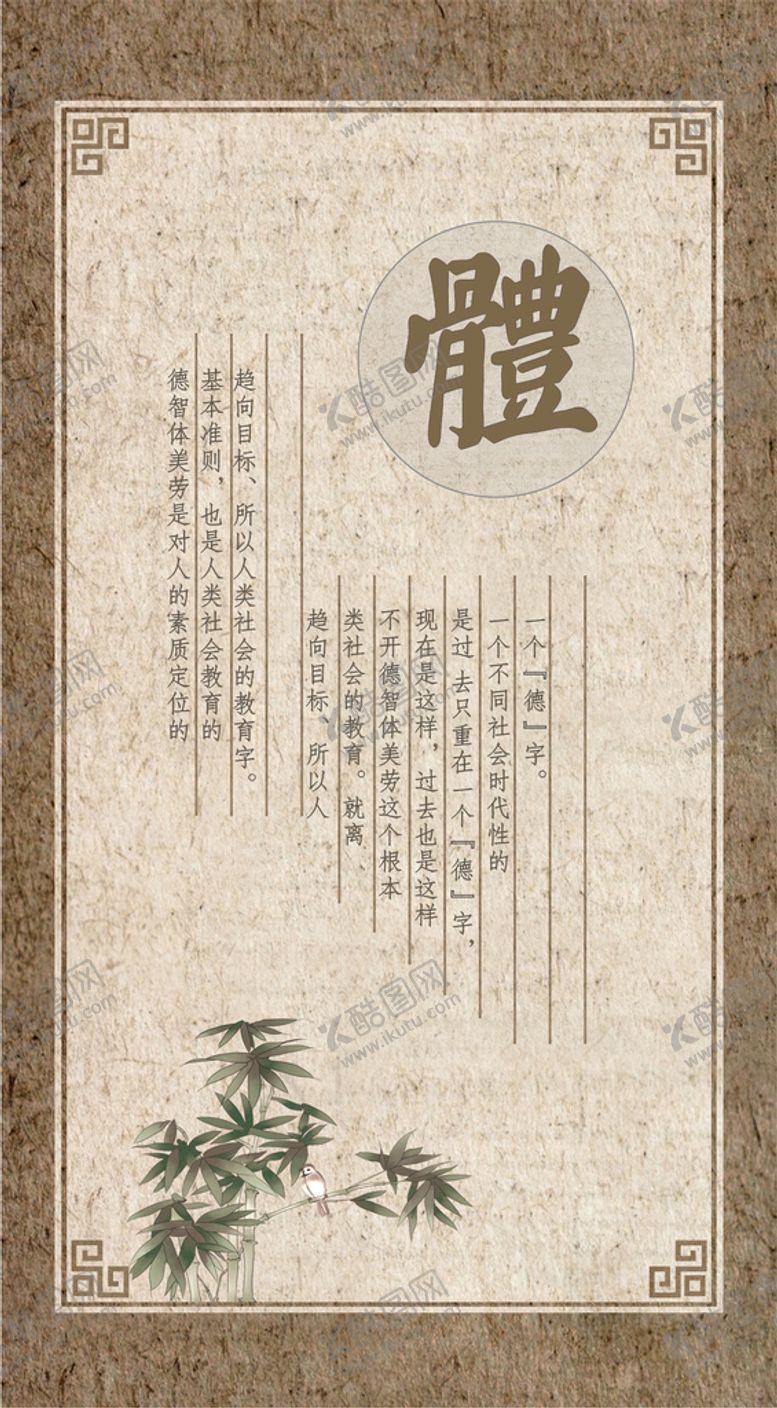 體
德智体美劳是对人的素质定位的
基本准则，也是人类社会教育的
趋向目标、所以人类社会的教育字。
趋向目标、所以人
类社会的教育。就离
不开德智体美劳这个根本
现在是这样，过去也是这样
是过 去只重在一个『德』字，
一个不同社会时代性的
一个『德』字。
酷图网
www.ikutu.com